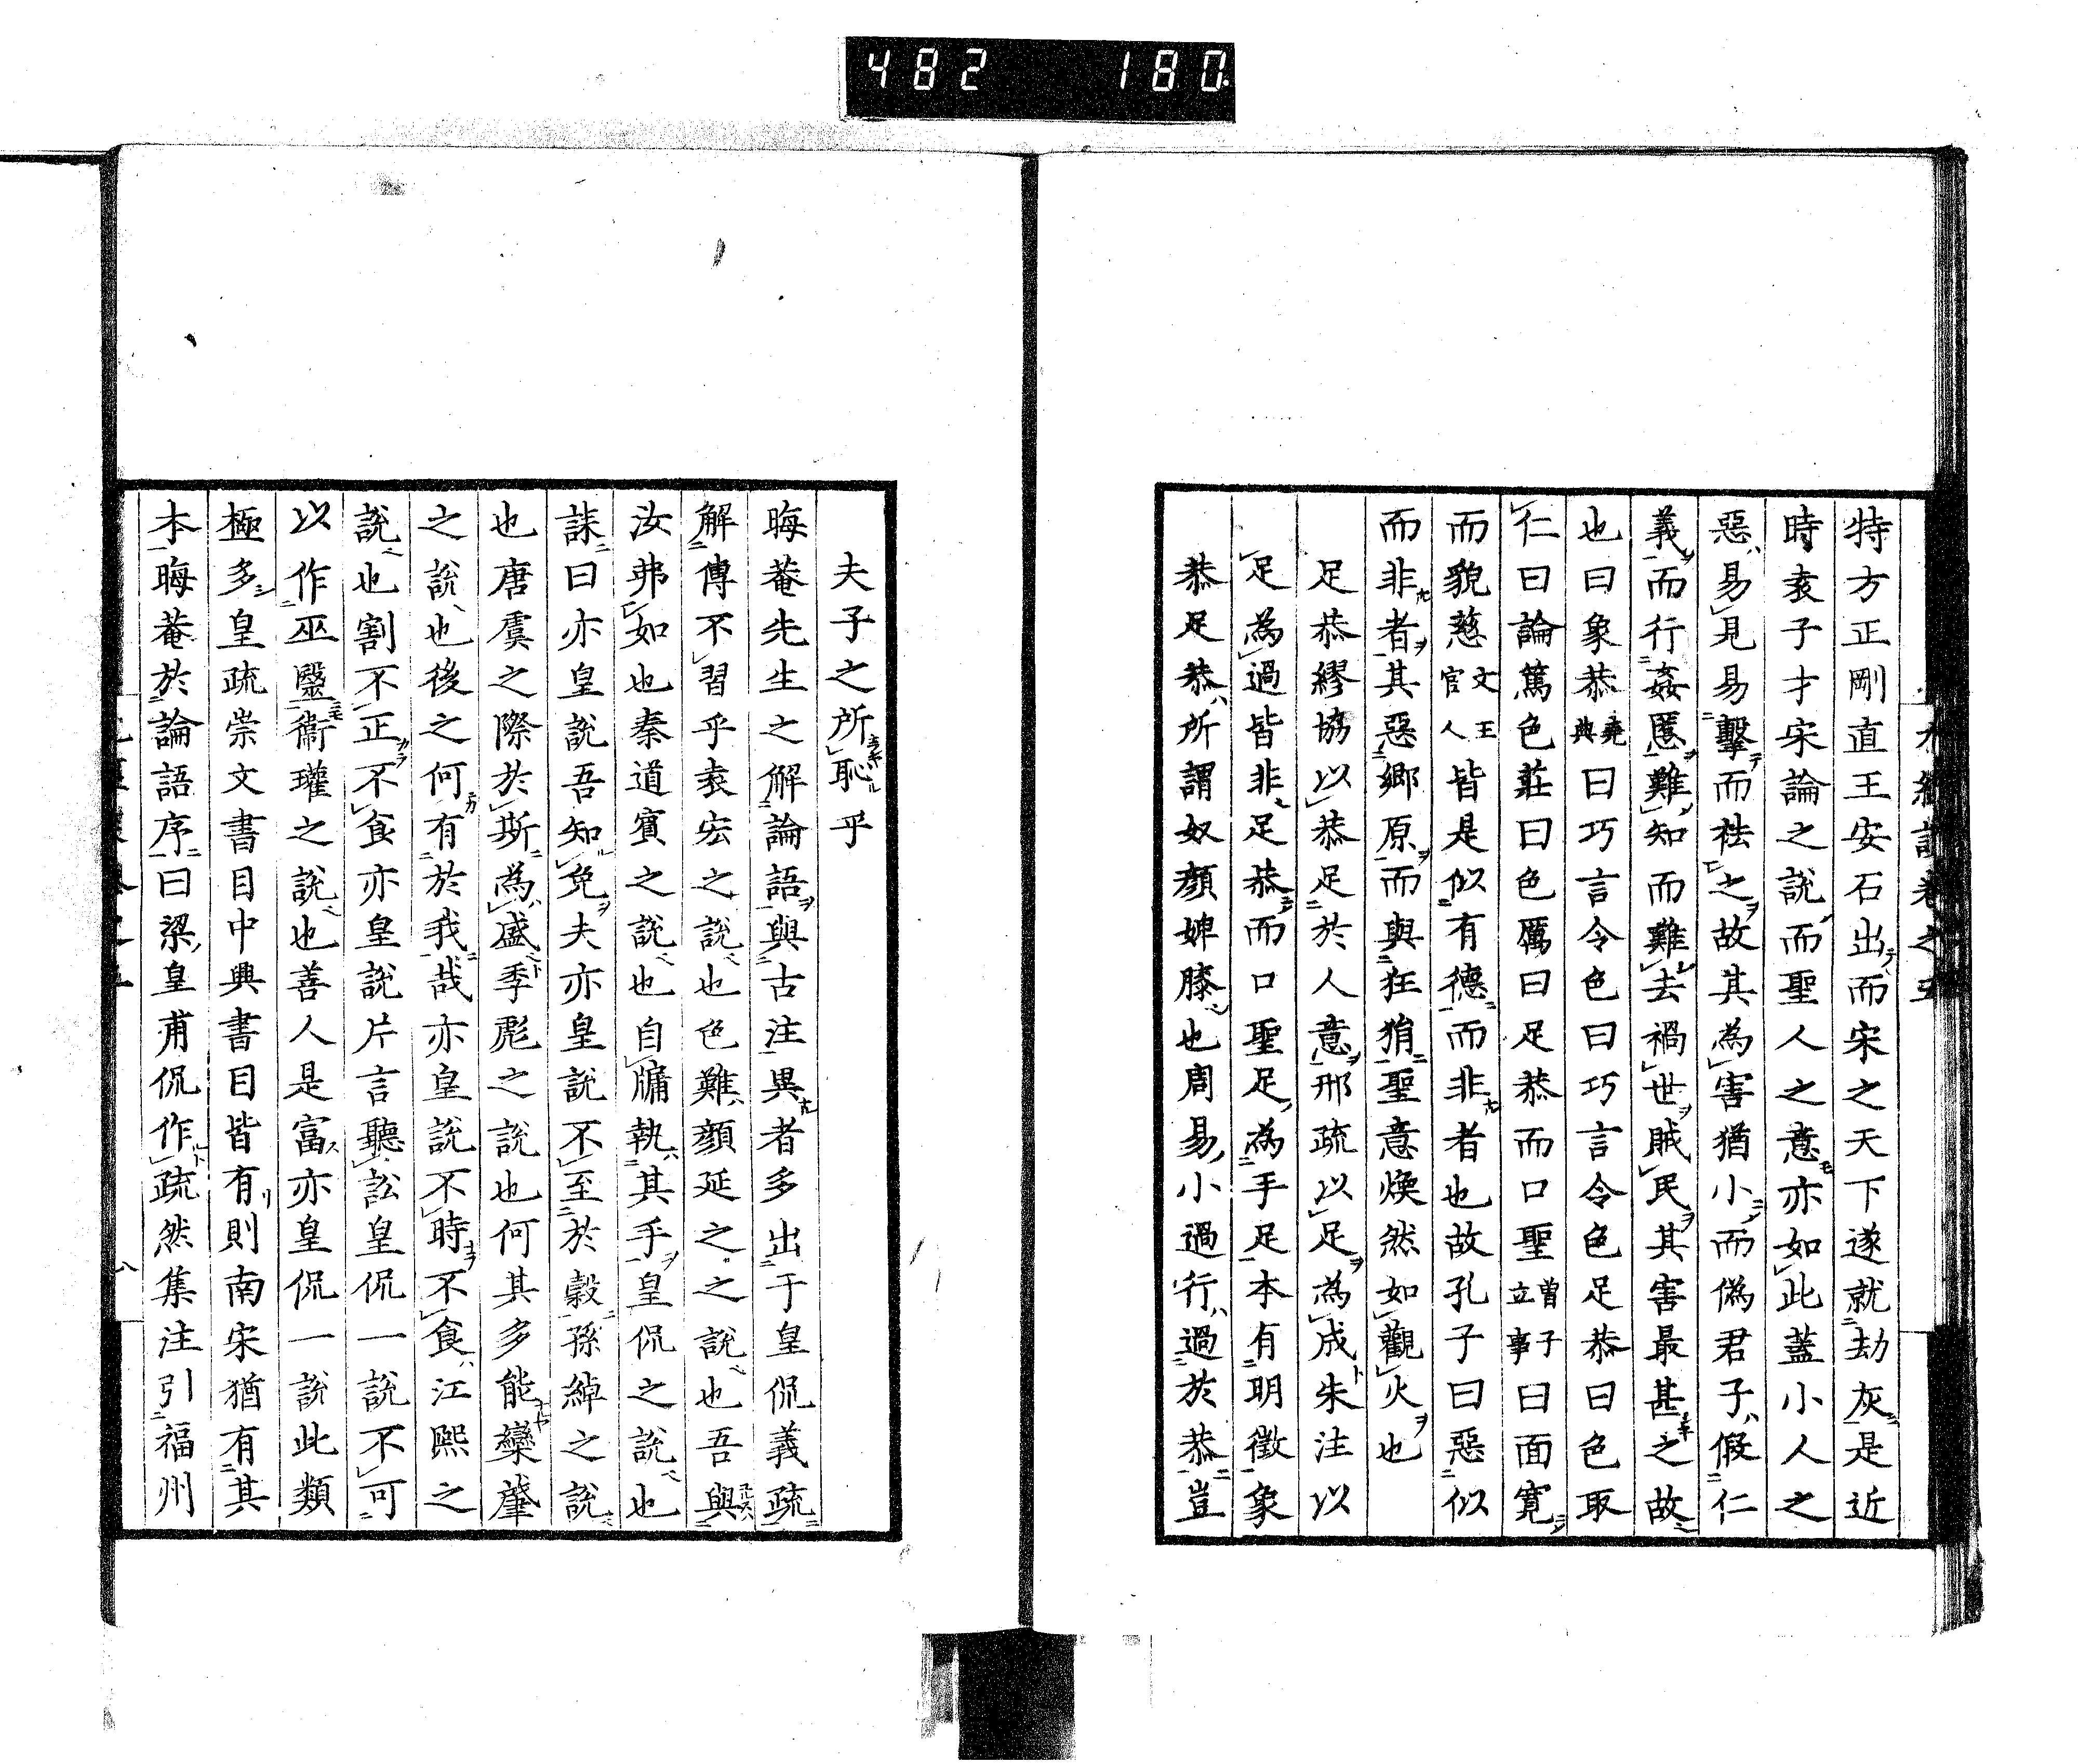 482 180
特方正剛直王安石出而宋之天下遂就劫灰是近
時袁子才宋論之説而聖人之意亦如此蓋小人之
惡易見易擊而祛之故其為害猶小而偽君子假仁
義而行姦慝難知而難去禍世賊民其害最甚之故
也曰象恭堯典曰巧言令色曰巧言令色足恭曰色取
仁曰論篤色莊曰色厲曰足恭而口聖曾子立事曰面寛
而貌慈文王官人皆是似有德而非者也故孔子曰惡似
而非者其惡郷原而與狂狷聖意煥然如觀火也
足恭繆協以恭足於人意邢疏以足為成朱注以
足為過皆非足恭而口聖足為手足本有明徴象
恭足恭所謂奴顔婢膝也周易小過行過於恭豈
夫子之所恥乎
晦菴先生之解論語與古注異者多出于皇侃義疏
解傳不習乎袁宏之説也色難顔延之之説也吾與
汝弗如也秦道賓之説也自牖執其手皇侃之説也
誅曰亦皇説吾知免夫亦皇説不至於穀孫綽之説
也唐虞之際於斯為盛季彪之説也何其多能欒肇
之説也後之何有於我哉亦皇説不時不食江熙之
説也割不正不食亦皇説片言聽訟皇侃一説不可
以作巫毉衞瓘之説也善人是富亦皇侃一説此類
極多皇疏崇文書目中興書目皆有則南宋猶有其
本晦菴於論語序曰梁皇甫侃作疏然集注引福州